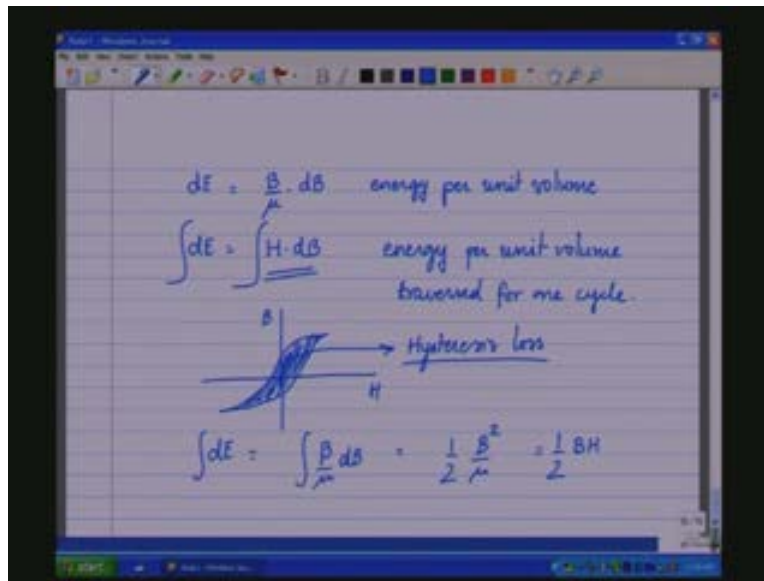 dE = B/μ . dB energy per unit volume
∫dE = ∫H.dB energy per unit volume
traversed for one cycle.
B
Hysteresis loss
H
∫dE = ∫B/μ dB = 1/2 B²/μ = 1/2 BH
start